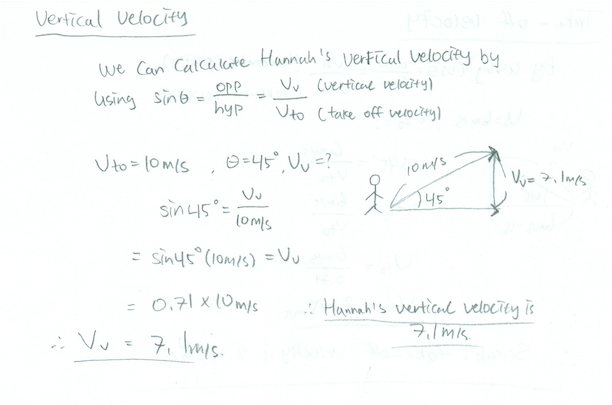 Vertical Velocity
We Can Calculate Hannah's vertical velocity by
Using sinθ = opp/hyp = Vv (vertical velocity)/Vto (take off velocity)
Vto = 10m/s , θ = 45°, Vv = ?
sin45° = Vv/10m/s
= sin45°(10m/s) = Vv
= 0.71 x 10m/s
∴ Vv = 7.1m/s.
10m/s
45°
Vv = 7.1m/s
∴ Hannah's vertical velocity is
7.1m/s.